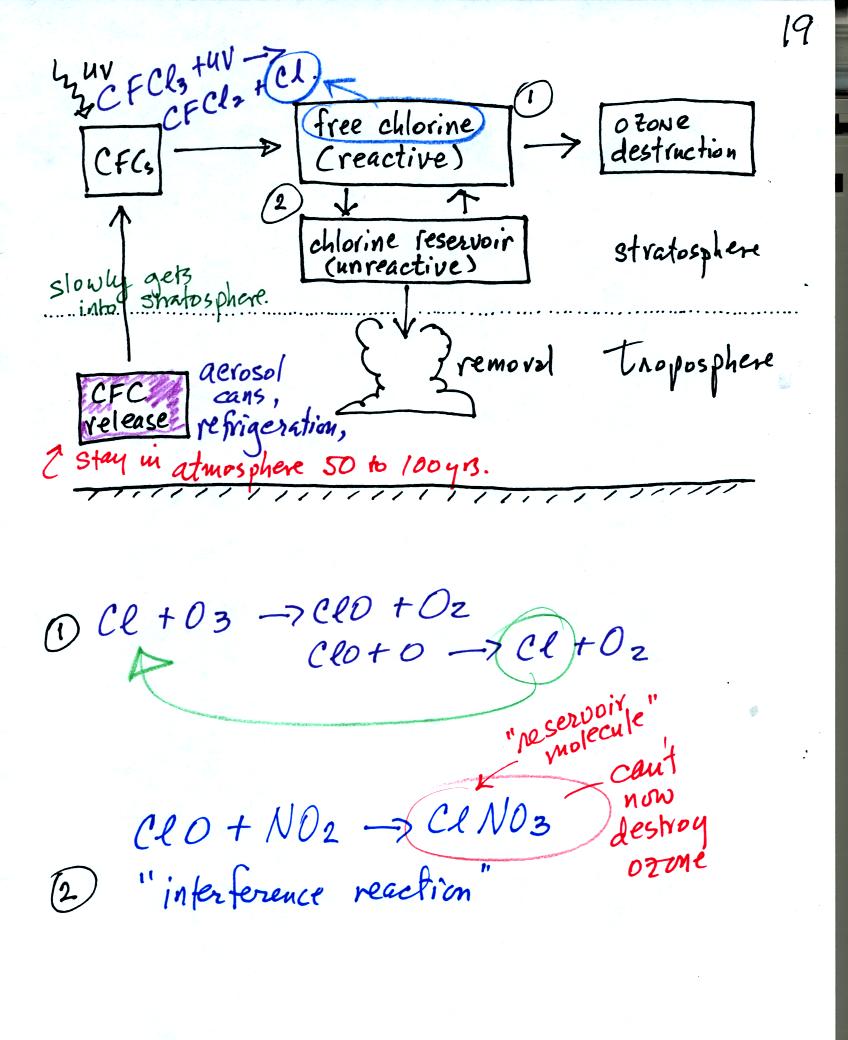 19
UV
CFCl3 + UV →
CFCl2 + Cl.
CFCs
free chlorine
(reactive)
1
ozone
destruction
2
chlorine reservoir
(unreactive)
stratosphere
slowly gets
into stratosphere.
removal
Troposphere
CFC
release
aerosol
cans,
refrigeration,
stay in atmosphere 50 to 100 yrs.
1 Cl + O3 → ClO + O2
ClO + O → Cl + O2
"reservoir
molecule"
can't
now
destroy
ozone
ClO + NO2 → ClNO3
2 "interference reaction"